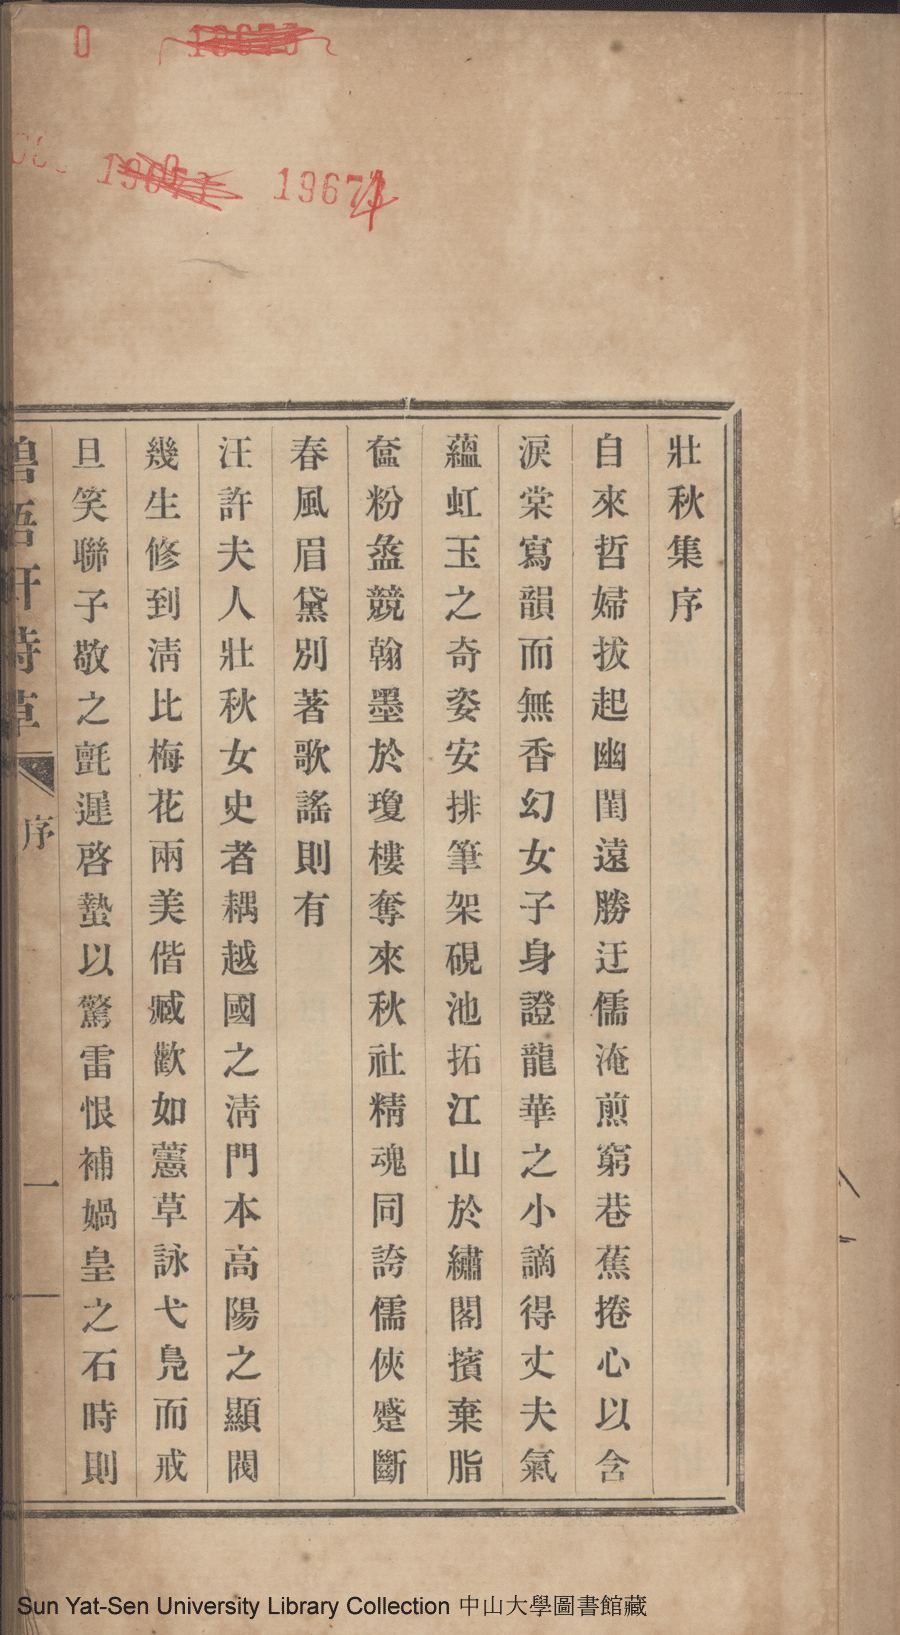 0
19674
壯秋集序
自來哲婦拔起幽閨遠勝迂儒淹煎窮巷蕉捲心以含
淚棠寫韻而無香幻女子身證龍華之小謫得丈夫氣
蘊虹玉之奇姿安排筆架硯池拓江山於繡閣擯棄脂
奩粉盝競翰墨於瓊樓奪來秋社精魂同誇儒俠蹙斷
春風眉黛別著歌謠則有
汪許夫人壯秋女史者耦越國之淸門本高陽之顯閥
幾生修到淸比梅花兩美偕臧歡如蕙草詠弋鳧而戒
旦笑聯子敬之氈遲啓蟄以驚雷恨補媧皇之石時則
碧梧軒詩草
序
一
Sun Yat-Sen University Library Collection 中山大學圖書館藏